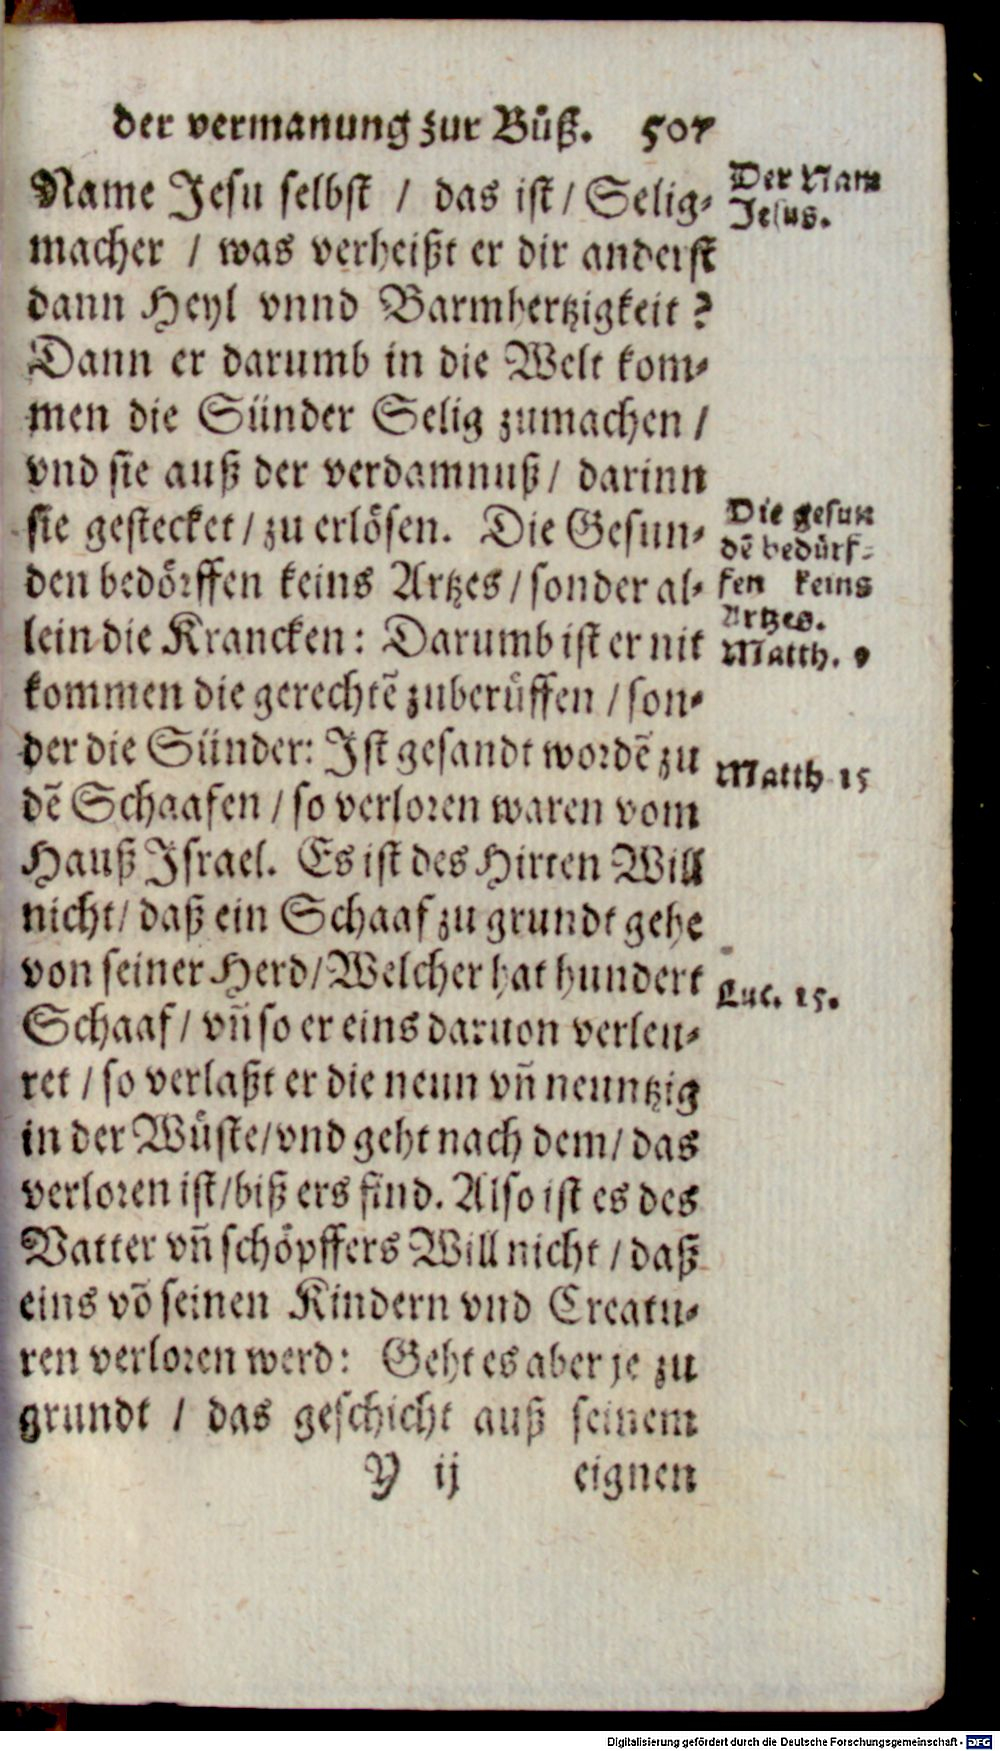 der vermanung zur Bůß. 507
Name Jesu selbst / das ist / Selig-
macher / was verheißt er dir anderst
dann Heyl vnnd Barmhertzigkeit?
Dann er darumb in die Welt kom-
men die Sünder Selig zumachen /
vnd sie auß der verdamnuß / darinn
sie gestecket / zu erlösen. Die Gesun-
den bedörffen keins Artzes / sonder al-
lein die Krancken: Darumb ist er nit
kommen die gerechtẽ zuberůffen / son-
der die Sünder: Ist gesandt wordẽ zu
dẽ Schaafen / so verloren waren vom
Hauß Israel. Es ist des Hirten Will
nicht / daß ein Schaaf zu grundt gehe
von seiner Herd / Welcher hat hundert
Schaaf / vñ so er eins daruon verleu-
ret / so verlaßt er die neun vñ neuntzig
in der Wůste / vnd geht nach dem / das
verloren ist / biß ers find. Also ist es des
Vatter vñ schöpffers Will nicht / daß
eins võ seinen Kindern vnd Creatu-
ren verloren werd: Geht es aber je zu
grundt / das geschicht auß seinem
Y ij eignen
Der Nam
Jesus.
Die gesun
dẽ bedürf-
fen keins
Artzes.
Matth. 9
Matth 15
Luc. 15.
Digitalisierung gefördert durch die Deutsche Forschungsgemeinschaft - DFG